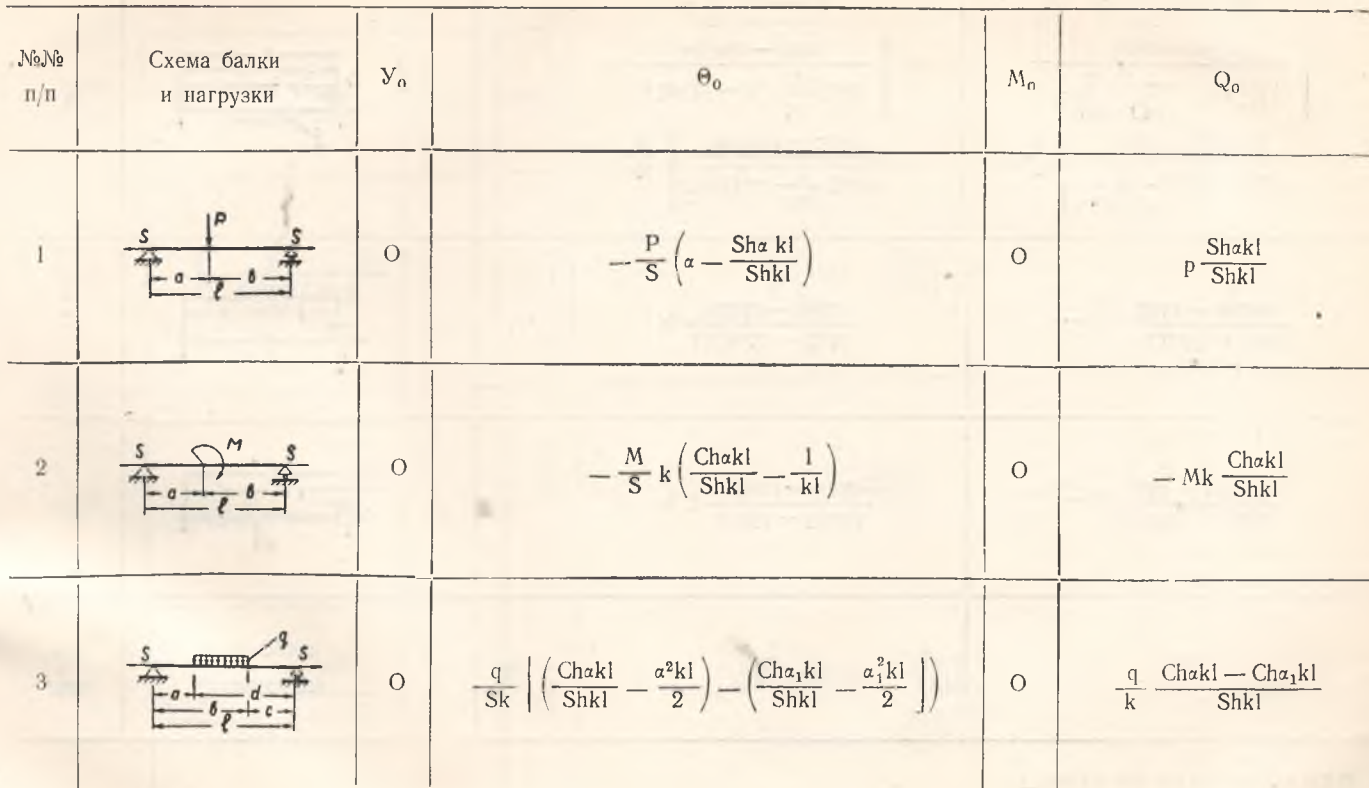 №№ п/п
Схема балки и нагрузки
Y₀
Θ₀
M₀
Q₀
1
P
S S
a в
ℓ
O
− P/S (α − Shα kl / Shkl)
O
p Shαkl / Shkl
2
M
S S
a в
ℓ
O
− M/S k (Chαkl / Shkl − 1/kl)
O
− Mk Chαkl / Shkl
3
q
S S
a d
в c
ℓ
O
q/Sk [(Chαkl / Shkl − α²kl / 2) − (Chα₁kl / Shkl − α₁²kl / 2])
O
q/k Chαkl − Chα₁kl / Shkl